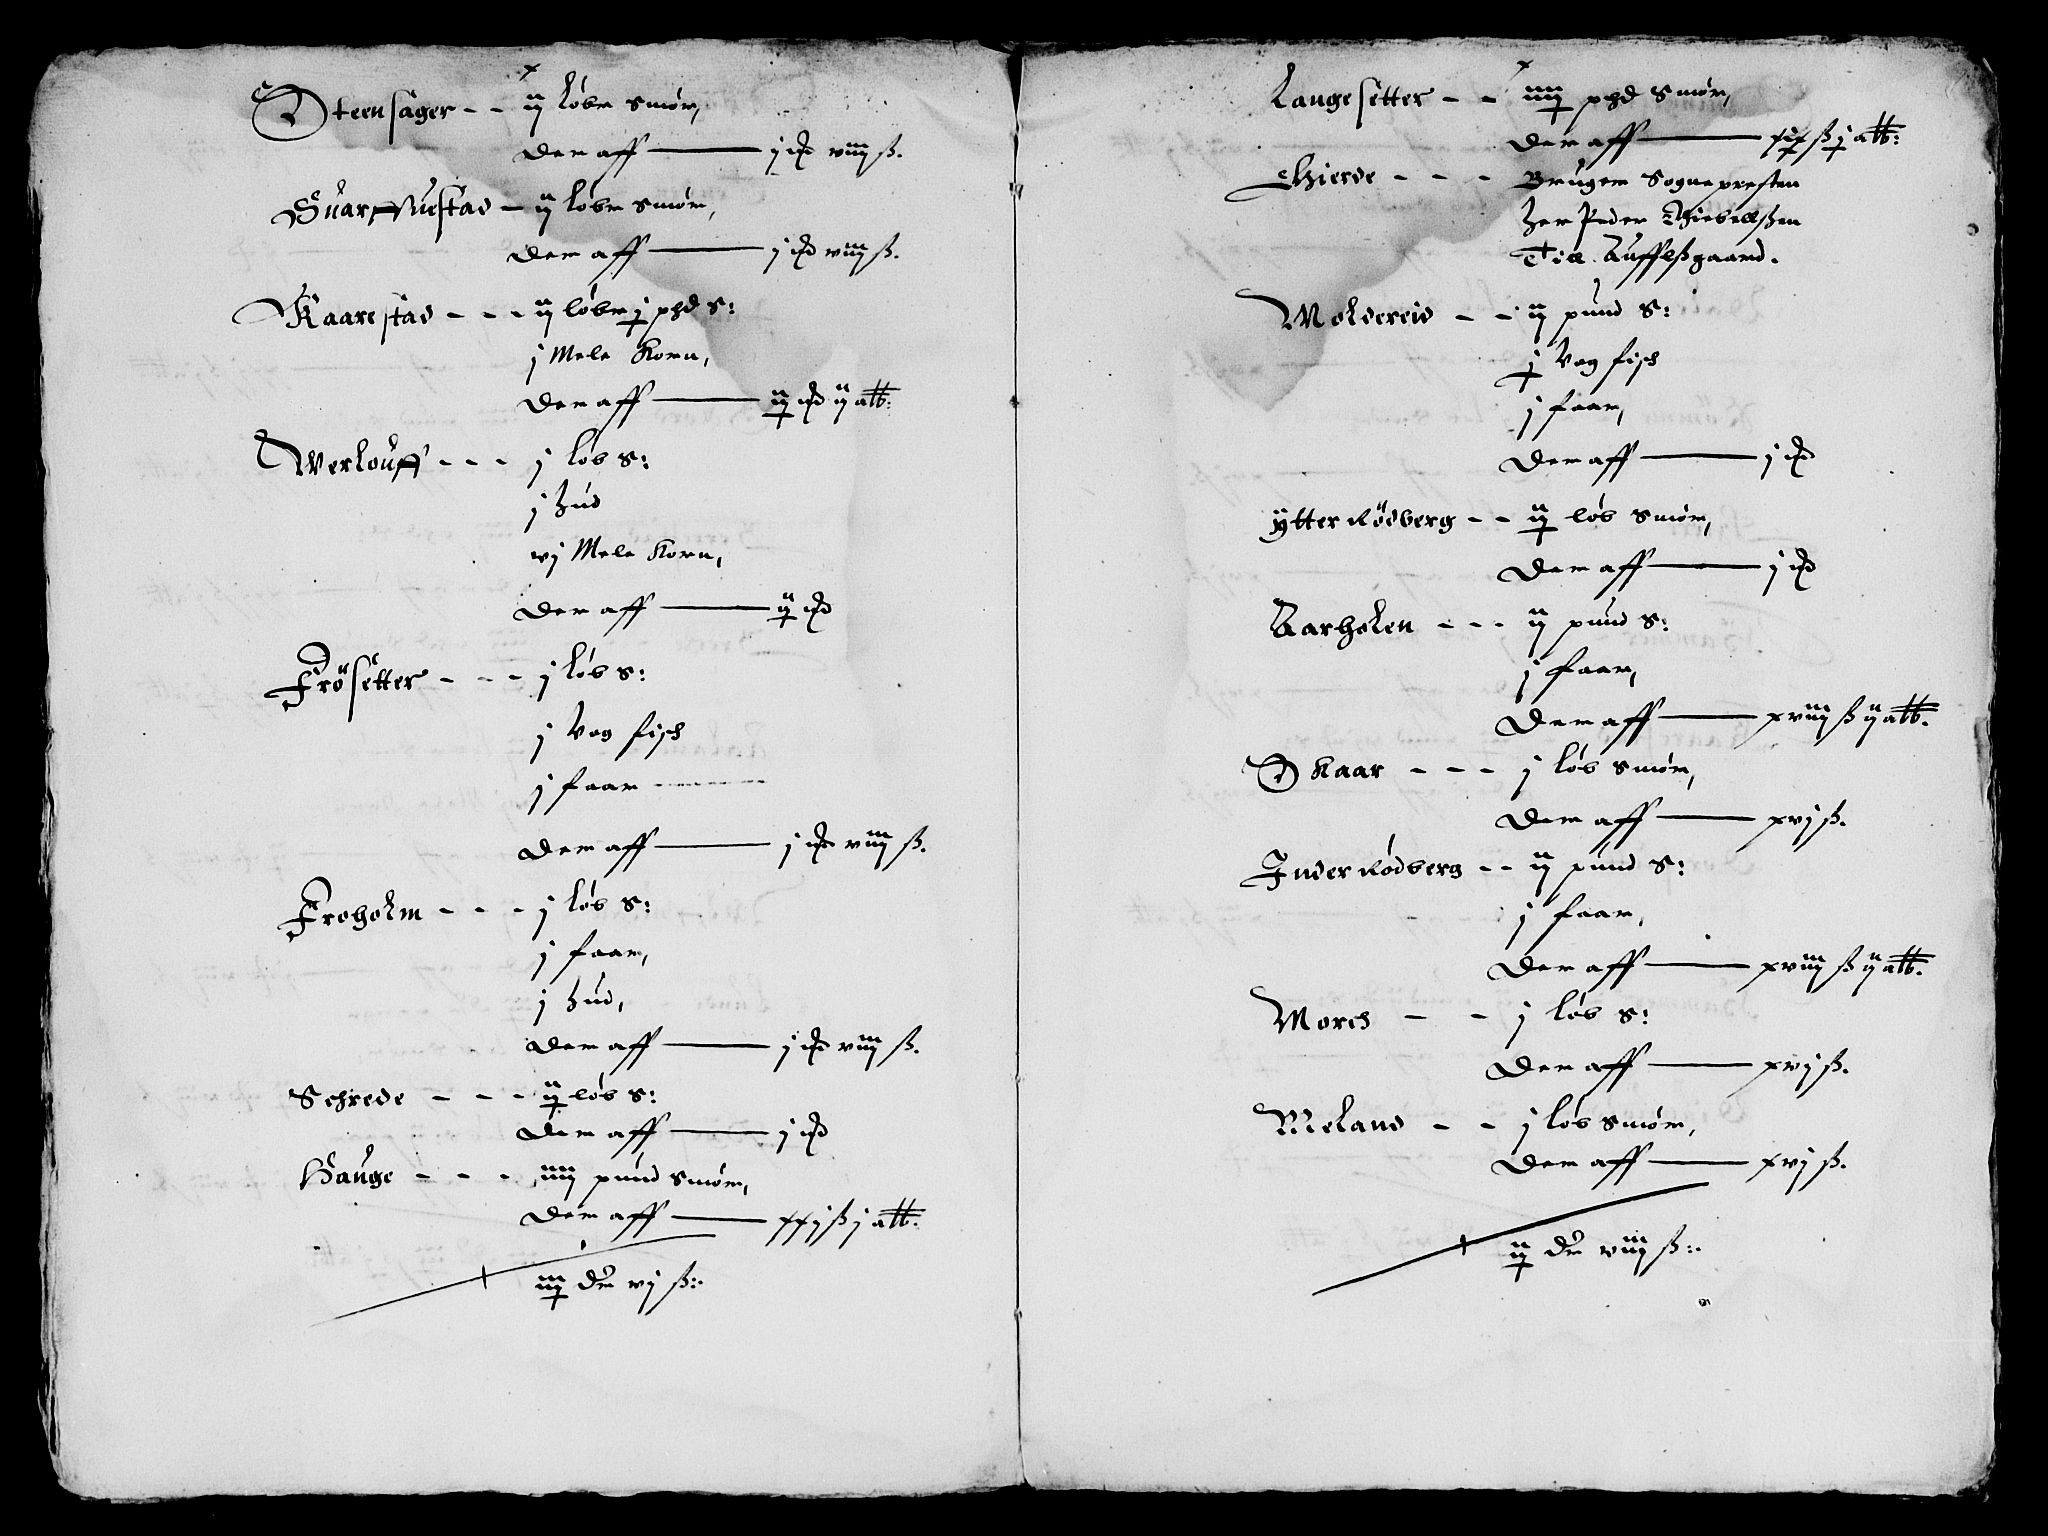 Steensager - - ij løber smør,
der aff — j ſd viij ß.
Suartuestad - ij løber smør,
der aff — j ſd viij ß.
Kaarestad - - - ij løber j phd s:
j Mele Korn,
der aff — ij ſd ij alb:
Werlouff - - - j løb s:
j hud
vj Mele Korn,
der aff — ij ſd
Frösetter - - - j løb s:
j Vog fisch
j faar
der aff — j ſd viij ß.
Froholm - - - j løb s:
j faar,
j hud,
der aff — j ſd viij ß.
Schrede - - - ij løb s:
der aff — j ſd
Hauge - - - iiij pund smør,
der aff — xxj ß j alb.
iiij dr vj ß:
Langesetter - - iiij phd Smør,
der aff — xix ß j alb:
Gierde - - - Bruger Sognepresten
Her Peder
Till Aufflßgaard.
Moldereid - - ij pund s:
j Vog fisch
j faar,
der aff — j ſd
Ytter Rödberg - - ij løb smør,
der aff — j ſd
Aarholen - - - ij pund s:
j faar,
der aff — xviij ß ij alb.
Skaar - - - j løb smør,
der aff — xvj ß.
Inder Rødberg - - ij pund s:
j faar,
der aff — xviij ß ij alb.
Morch - - j løb s:
der aff — xvj ß.
Meland - - j løb smør,
der aff — xvj ß.
ij dr viij ß: